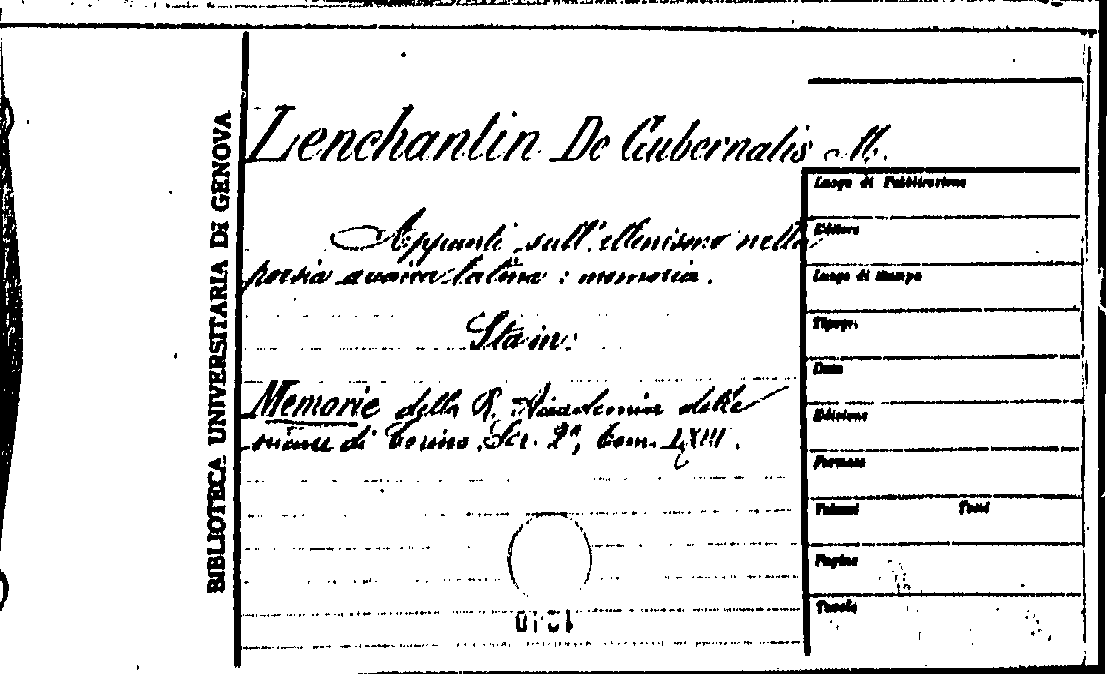 BIBLIOTECA UNIVERSITARIA DI GENOVA
Lenchantin De Gubernatis M.
Appunti sull'ellenismo nella
poesia arcaica latina : memoria.
Sta in:
Memorie della R. Accademia delle
scienze di Torino, Ser. 2ª, tom. LXIII.
Luogo di Pubblicazione
Editore
Luogo di stampa
Tipogr.
Data
Edizione
Formato
Volumi Tomi
Pagine
Tavole